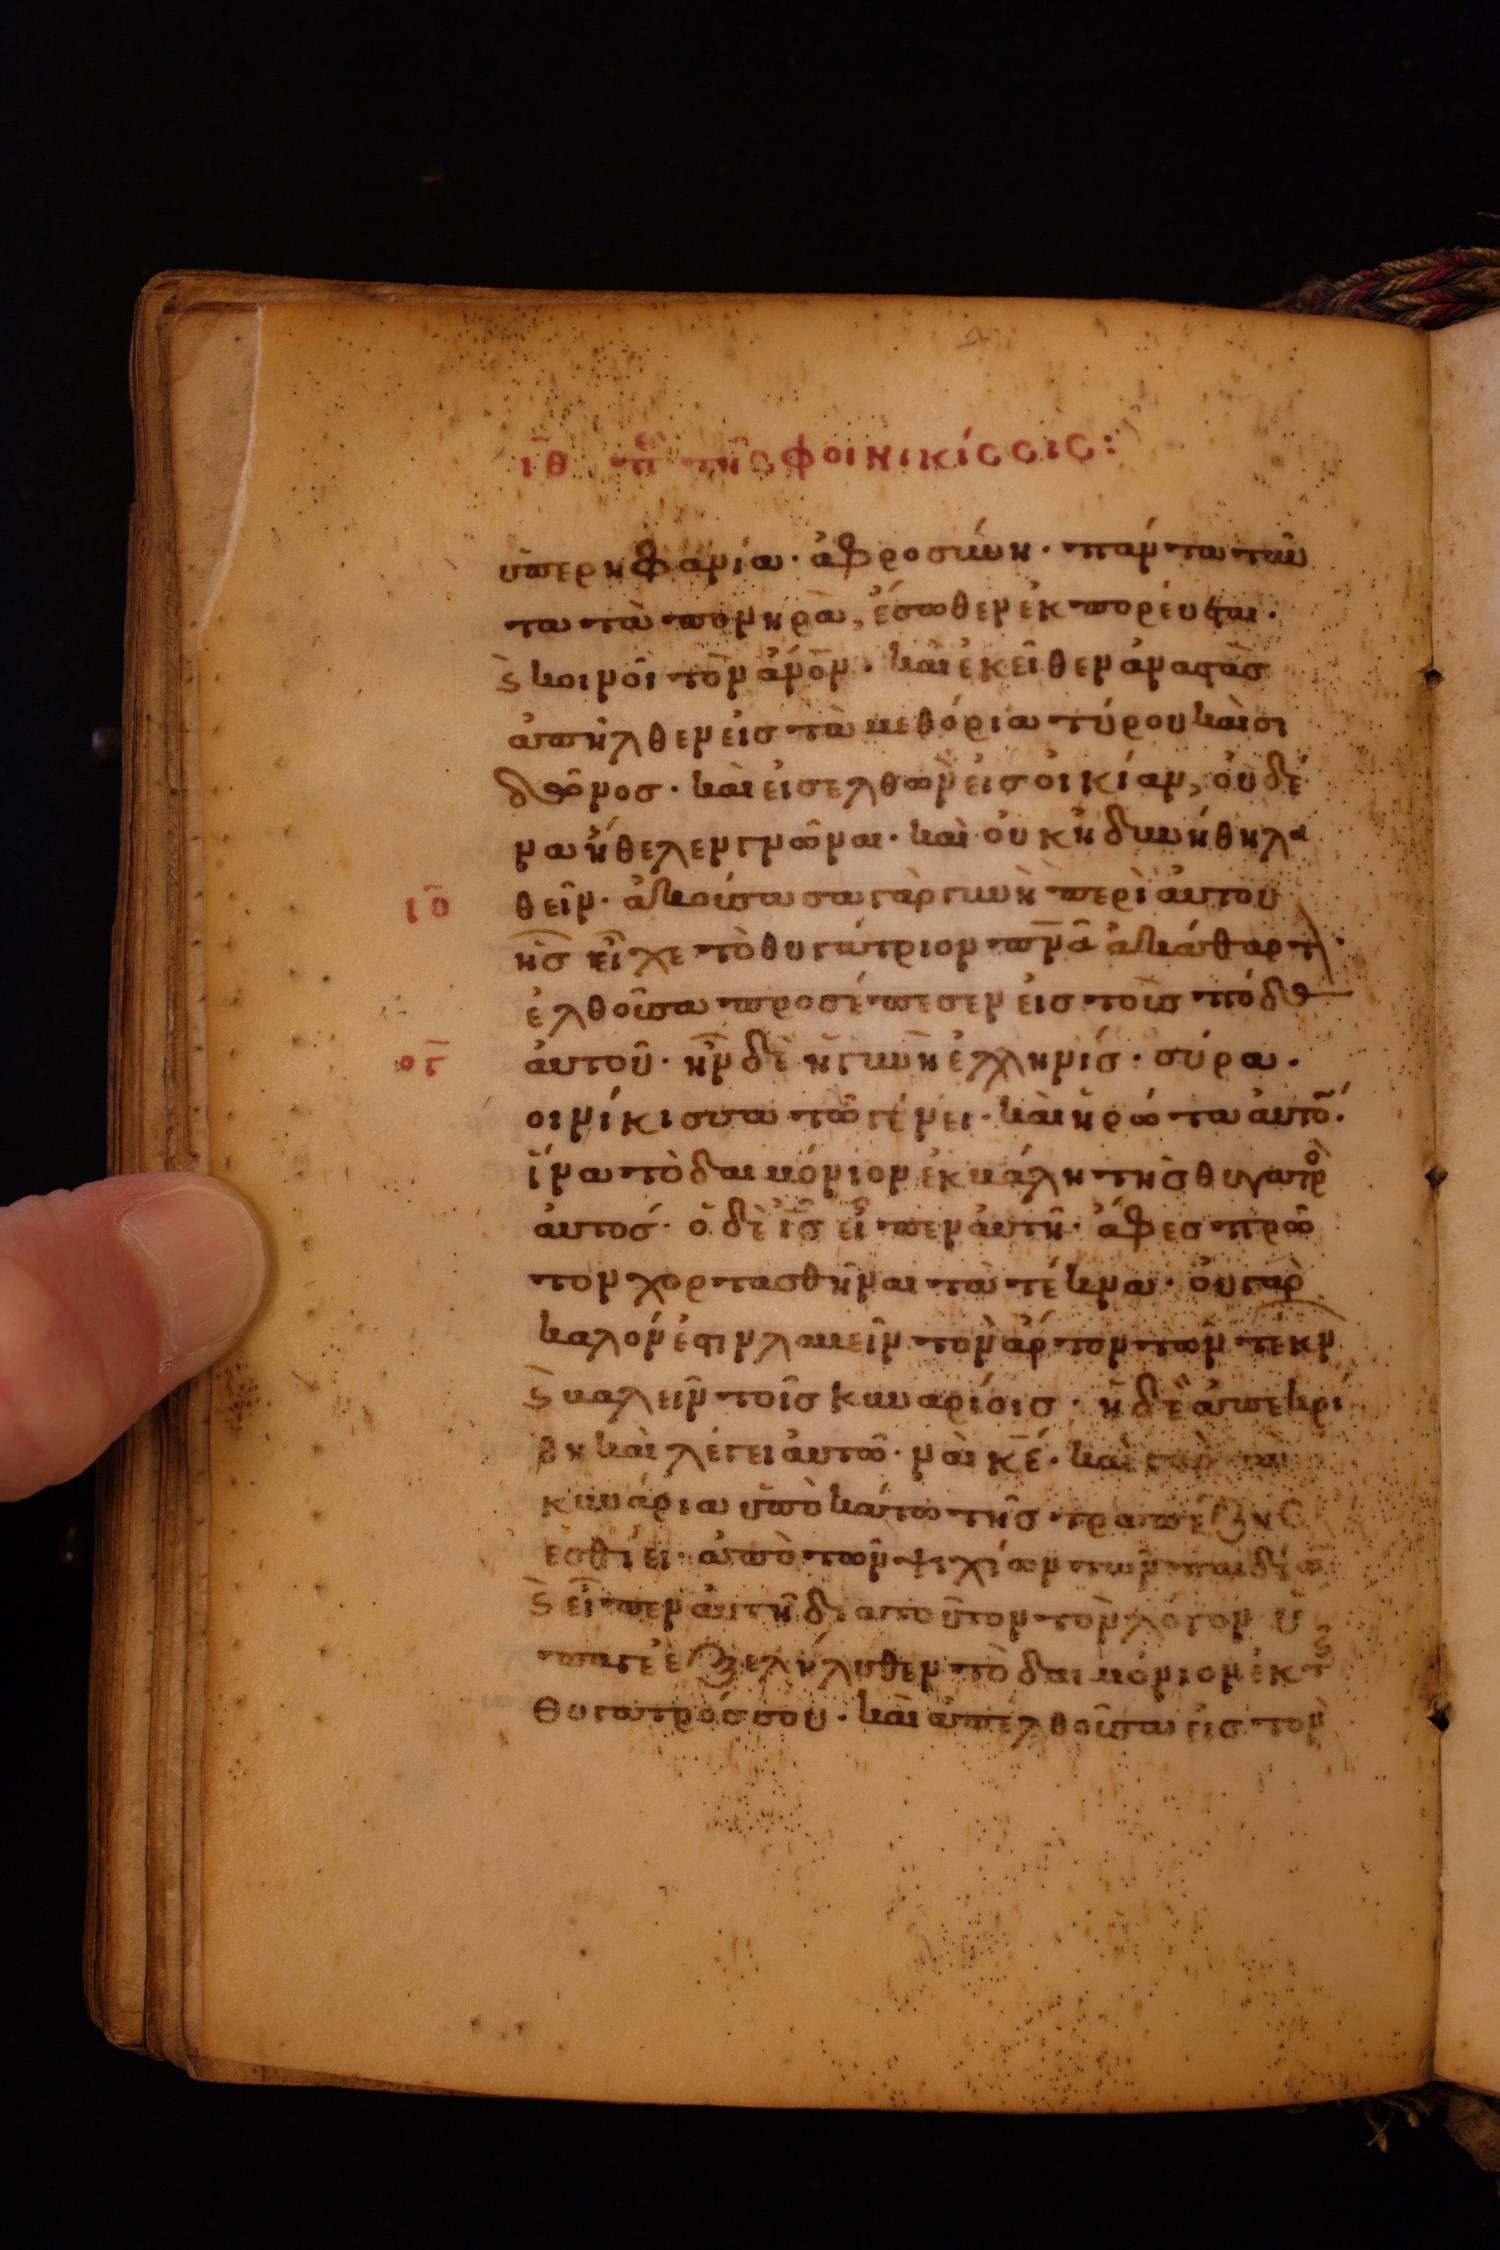 ιθ πε τῆς φοινικίσσις:
ὑπερηφανία· ἀφροσύνη· πάντα ταῦ
τα τὰ πονηρὰ, ἔσωθεν ἐκπορεύεται·
ϛ κοινοῖ τὸν ἄνο̅ν· καὶ ἐκεῖθεν ἀναστὰσ
ἀπῆλθεν εἰσ τὰ μεθόρια τύρου καὶ σι
δῶνοσ· καὶ εἰσελθὼν εἰσ οἰκίαν, οὐδέ
να ἤθελεν γνῶναι· καὶ οὐκ ἠδυνήθη λα
ιο̅ θεῖν· ἀκούσασα γὰρ γυνὴ περὶ ἀυτοῦ
ἧσ εἶχε τὸ θυγάτριον πν̅α ἀκάθαρτ
ἐλθοῦσα προσέπεσεν εἰσ τοὺσ πόδασ
ογ̅ ἀυτοῦ· ἦν δὲ ἡ γυνὴ ἑλληνίσ· σύρα·
οινίκισσα τῶ γένει· καὶ ἠρώτα ἀυτο̅·
ἵνα τὸ δαιμόνιον ἐκβάλη τῆσ θυγατρο
ἀυτοσ· ὁ δὲ ι̅σ εἶπεν ἀυτῆ· ἄφεσ πρῶ
τον χορτασθῆναι τὰ τέκνα· οὐ γὰρ
καλόν ἐστιν λαβεῖν τὸν ἄρτον τῶν τέκν
ϛ βαλεῖν τοῖσ κυναρίοισ· ἡ δὲ ἀπεκρί
θη καὶ λέγει ἀυτῶ· ναὶ κ̅ε· καὶ γὰρ τὰ
κυνάρια ὑποκάτω τῆσ τραπέζησ
ἐσθίει· ἀπὸ τῶν ψιχίων τῶν παιδίω
ϛ εἶπεν ἀυτῆ διὰ τοῦτον τὸν λόγον ὕ
παγε ἐξελήλυθεν τὸ δαιμόνιον ἐκ τ
θυγατρόσ σου· καὶ ἀπελθοῦσα εἰσ τὸν